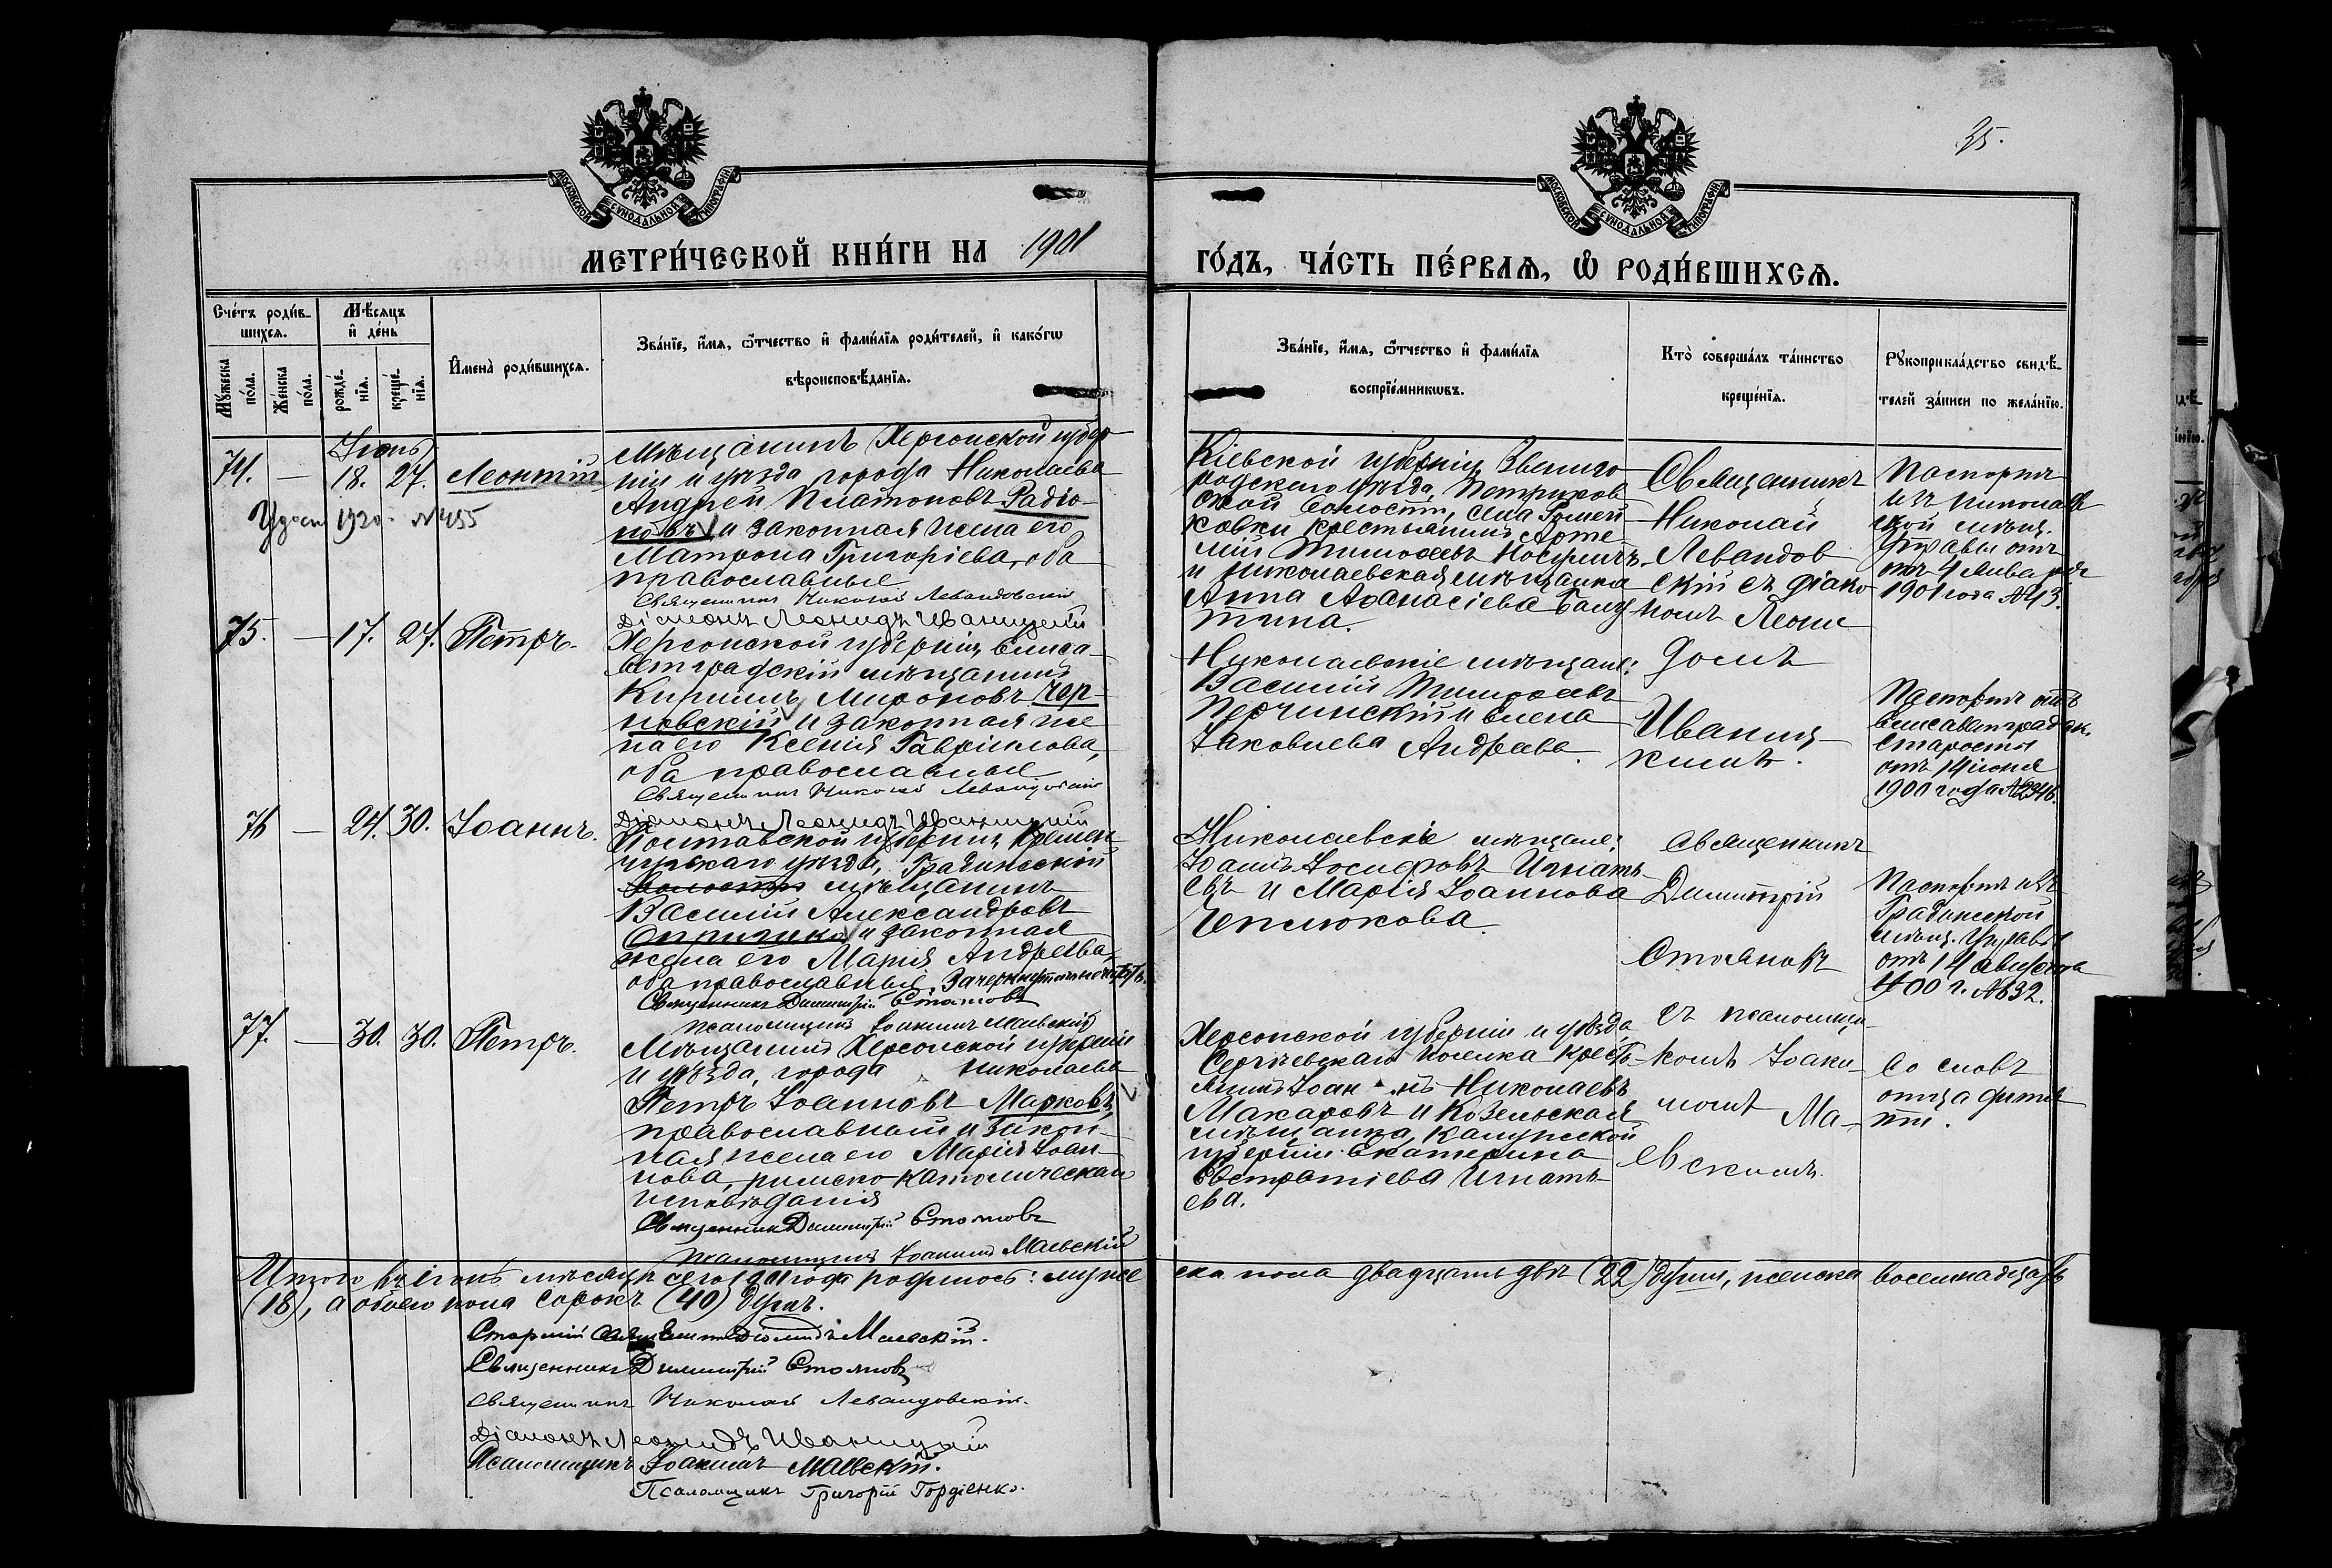 35.
МОСКОВСКОЙ СѴНОДАЛЬНОЙ ТИПОГРАФІИ
МОСКОВСКОЙ СѴНОДАЛЬНОЙ ТИПОГРАФІИ
МЕТРИ́ЧЕСКОЙ КНИ́ГИ НА 1901
ГО́ДЪ, ЧА́СТЬ ПЕ́РВАѦ, Ѡ҆ РОДИ́ВШИХСѦ.
Сче́тъ роди́в-
шихсѧ.
Мꙋ́жеска
по́ла.
Же́нска
по́ла.
Мѣ́сѧцъ
и҆ де́нь
рожде́-
нїѧ.
креще́-
нїѧ.
И҆мена̀ роди́вшихсѧ.
Зва́нїе, и҆́мѧ, ѻ҆́тчество и҆ фами́лїѧ роди́телей, и҆ како́гѡ
вѣроисповѣ́данїѧ.
Зва́нїе, и҆́мѧ, ѻ҆́тчество и҆ фами́лїѧ
воспрїе́мникѡвъ.
Кто̀ соверша́лъ та́инство
креще́нїѧ.
Рꙋкоприкла́дство свидѣ́-
телей за́писи по жела́нїю.
Іюнь
74. — 18. 27. Леонтій
1920. № 455
Мѣщанинъ Херсонской губер
ніи и уѣзда города Николаева
Андрей Платоновъ Радіо-
новъ и законная жена его
Матрона Григоріева, оба
православные
Священникъ Николай Левандовскій
Діаконъ Леонидъ Иваницкій
Кіевской губерніи, Звениго
родскаго уѣзда, Петриков
ской волости, села
крестьянинъ Арте
мій Тимоѳеевъ
и николаевская мѣщанка
Анна Аѳанасіева
Священникъ
Николай
Левандов
скій съ діако
номъ Леони
домъ
Иваниц-
кимъ.
Паспортъ
изъ Николаев
ской мѣщ.
Управы отъ
1901 года № 13.
75. — 17. 27. Петръ.
Херсонской губерніи Елиса-
ветградскій мѣщанинъ
Кириллъ Мироновъ Чер-
новскій и законная же
на его Ксенія Гавріилова,
оба православные
Священникъ Николай Левандовскій
Діаконъ Леонидъ Иваницкій
Николаевскіе мѣщане:
Василій Тимоѳеевъ
Перчинскій и Елена
Іаковлева Андреева.
Паспортъ отъ
Елисаветградск.
Старосты
отъ 14 іюня
1900 года №
76 — 24. 30. Іоаннъ.
Полтавской губерніи Кремен-
чугскаго уѣзда, Градижескій
волости мѣщанинъ
Василій Александровъ
и законная
жена его Марія Андреева,
оба православные. Зачеркнутое не читать.
Священникъ Димитрій Стояновъ
Псаломщикъ Іоакимъ Маевскій
Николаевскіе мѣщане:
Іоаннъ Іосифовъ Игнать-
евъ и Марія Іоаннова
Чеплюкова.
Священникъ
Димитрій
Стояновъ
съ псаломщи-
комъ Іоаки-
момъ Ма-
евскимъ.
Паспортъ изъ
Градижской
мѣщ. Управы
отъ 14 августа
1900 г. № 832.
77. — 30. 30. Петръ.
Мѣщанинъ Херсонской губерніи
и уѣзда, города Николаева
Петръ Іоанновъ Марковъ,
православный и закон-
ная жена его Марія Іоан-
нова, римско-католическаго
исповѣданія
Священникъ Димитрій Стояновъ
Псаломщикъ Іоакимъ Маевскій
Херсонской губерніи и уѣзда
Сергѣевскаго поселка кресть-
янинъ Іоаннъ Николаевъ
Макаровъ и Козельская
мѣщанка, Калужской
губерніи Екатерина
Евстратіева Игнать-
ева.
Со словъ
отца дитя
ти.
Итого въ іюнѣ мѣсяцѣ сего 1901 года родилось: муже
ска пола двадцать двѣ (22) души, женска восемнадцать
(18), а обоего пола сорокъ (40) душъ.
Старшій Священникъ Діомидъ Маевскій.
Священникъ Димитрій Стояновъ
Священникъ Николай Левандовскій.
Діаконъ Леонидъ Иваницкій
Псаломщикъ Іоакимъ Маевскій.
Псаломщикъ Григорій Гордіенко.